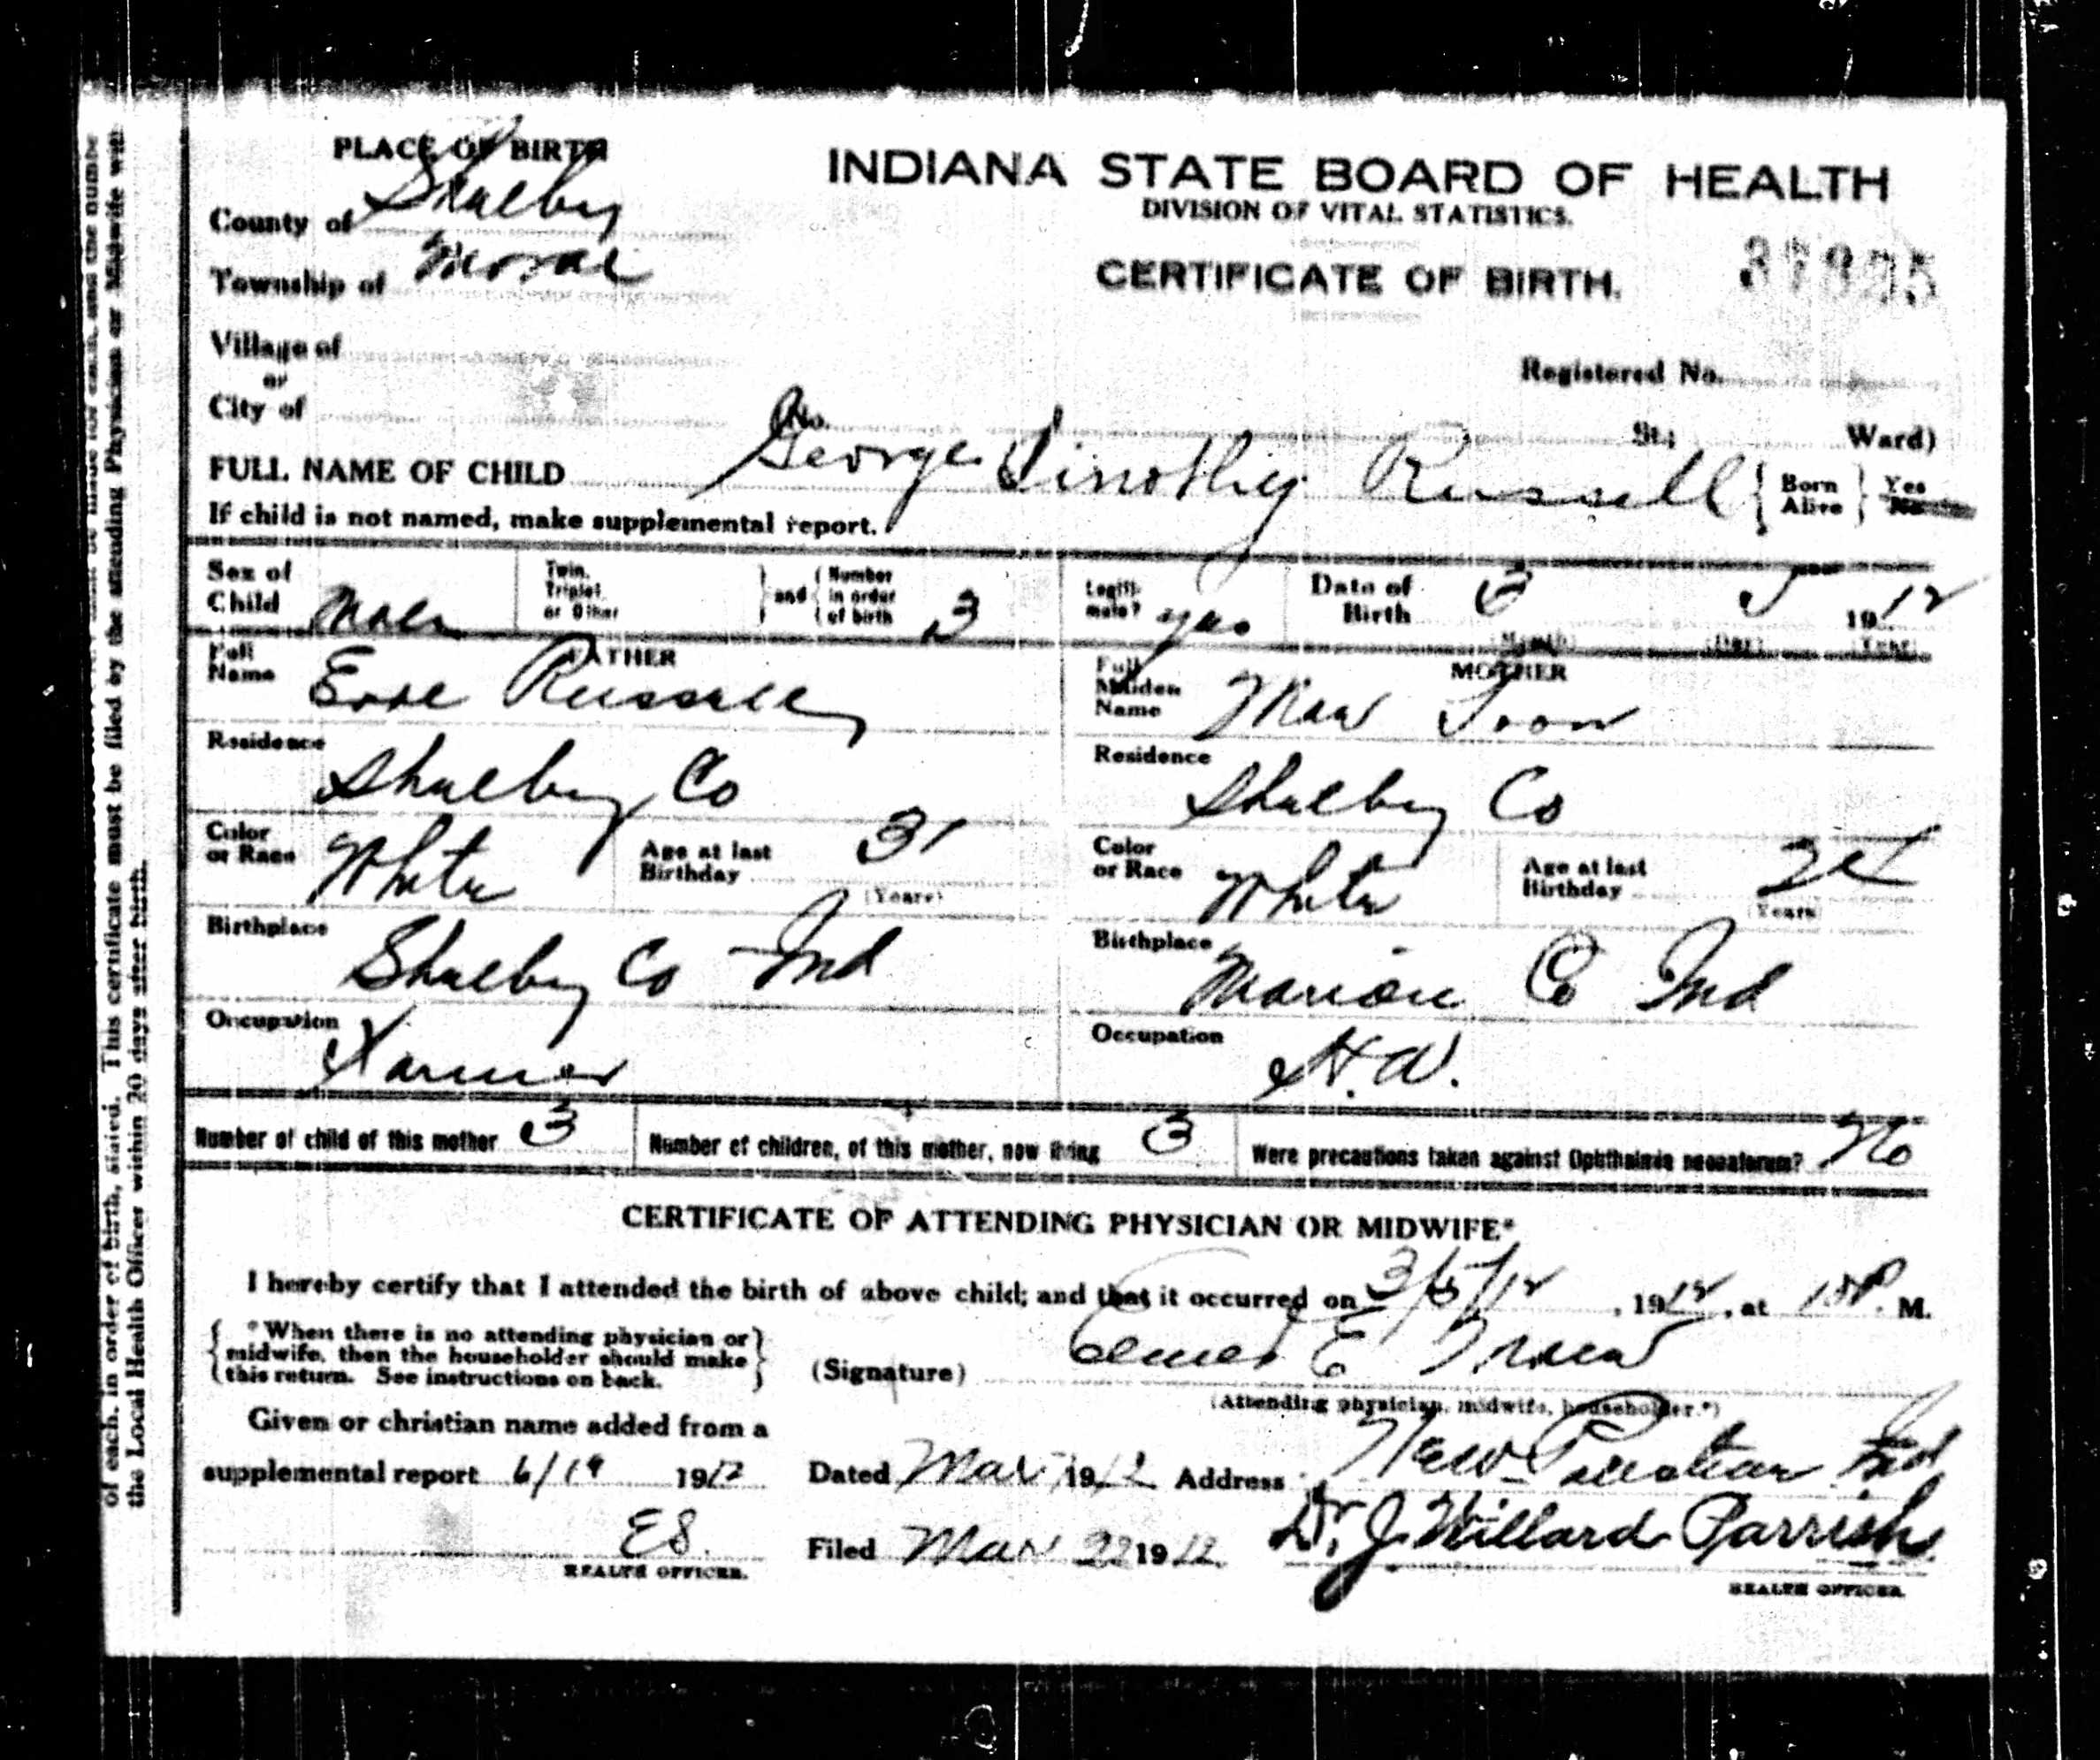 of each, in order of birth, stated. This certificate must be filed by the attending Physician or Midwife with
the Local Health Officer within 20 days after birth.
PLACE OF BIRTH
INDIANA STATE BOARD OF HEALTH
DIVISION OF VITAL STATISTICS.
CERTIFICATE OF BIRTH.
County of Shelby
Township of Moral
Village of
or
City of
Registered No.
No. St.; Ward)
FULL NAME OF CHILD George Timothy Russell { Born Alive } Yes No
If child is not named, make supplemental report.
Sex of Child Male Twin, Triplet, or Other } and { Number in order of birth 3 Legiti-mate? yes Date of Birth 3 5 1912
(Month) (Day) (Year)
FATHER
MOTHER
Full Name Russell
Full Maiden Name Toon
Residence Shelby Co
Residence Shelby Co
Color or Race White Age at last Birthday 31 (Years)
Color or Race White Age at last Birthday (Years)
Birthplace Shelby Co Ind
Birthplace Marion Co Ind
Occupation Farmer
Occupation H.W.
Number of child of this mother 3 Number of children, of this mother, now living 3 Were precautions taken against Ophthalmia neonatorum? No
CERTIFICATE OF ATTENDING PHYSICIAN OR MIDWIFE*
I hereby certify that I attended the birth of above child; and that it occurred on 3/5/12, 1912, at P. M.
{ *When there is no attending physician or midwife, then the householder should make this return. See instructions on back. }
(Signature) E
(Attending physician, midwife, householder.*)
Given or christian name added from a
supplemental report 6/19 1912
Dated Mar 1912 Address New Palestine Ind
ES.
HEALTH OFFICER.
Filed Mar 22 1912 Dr. J. Willard Parrish
HEALTH OFFICER